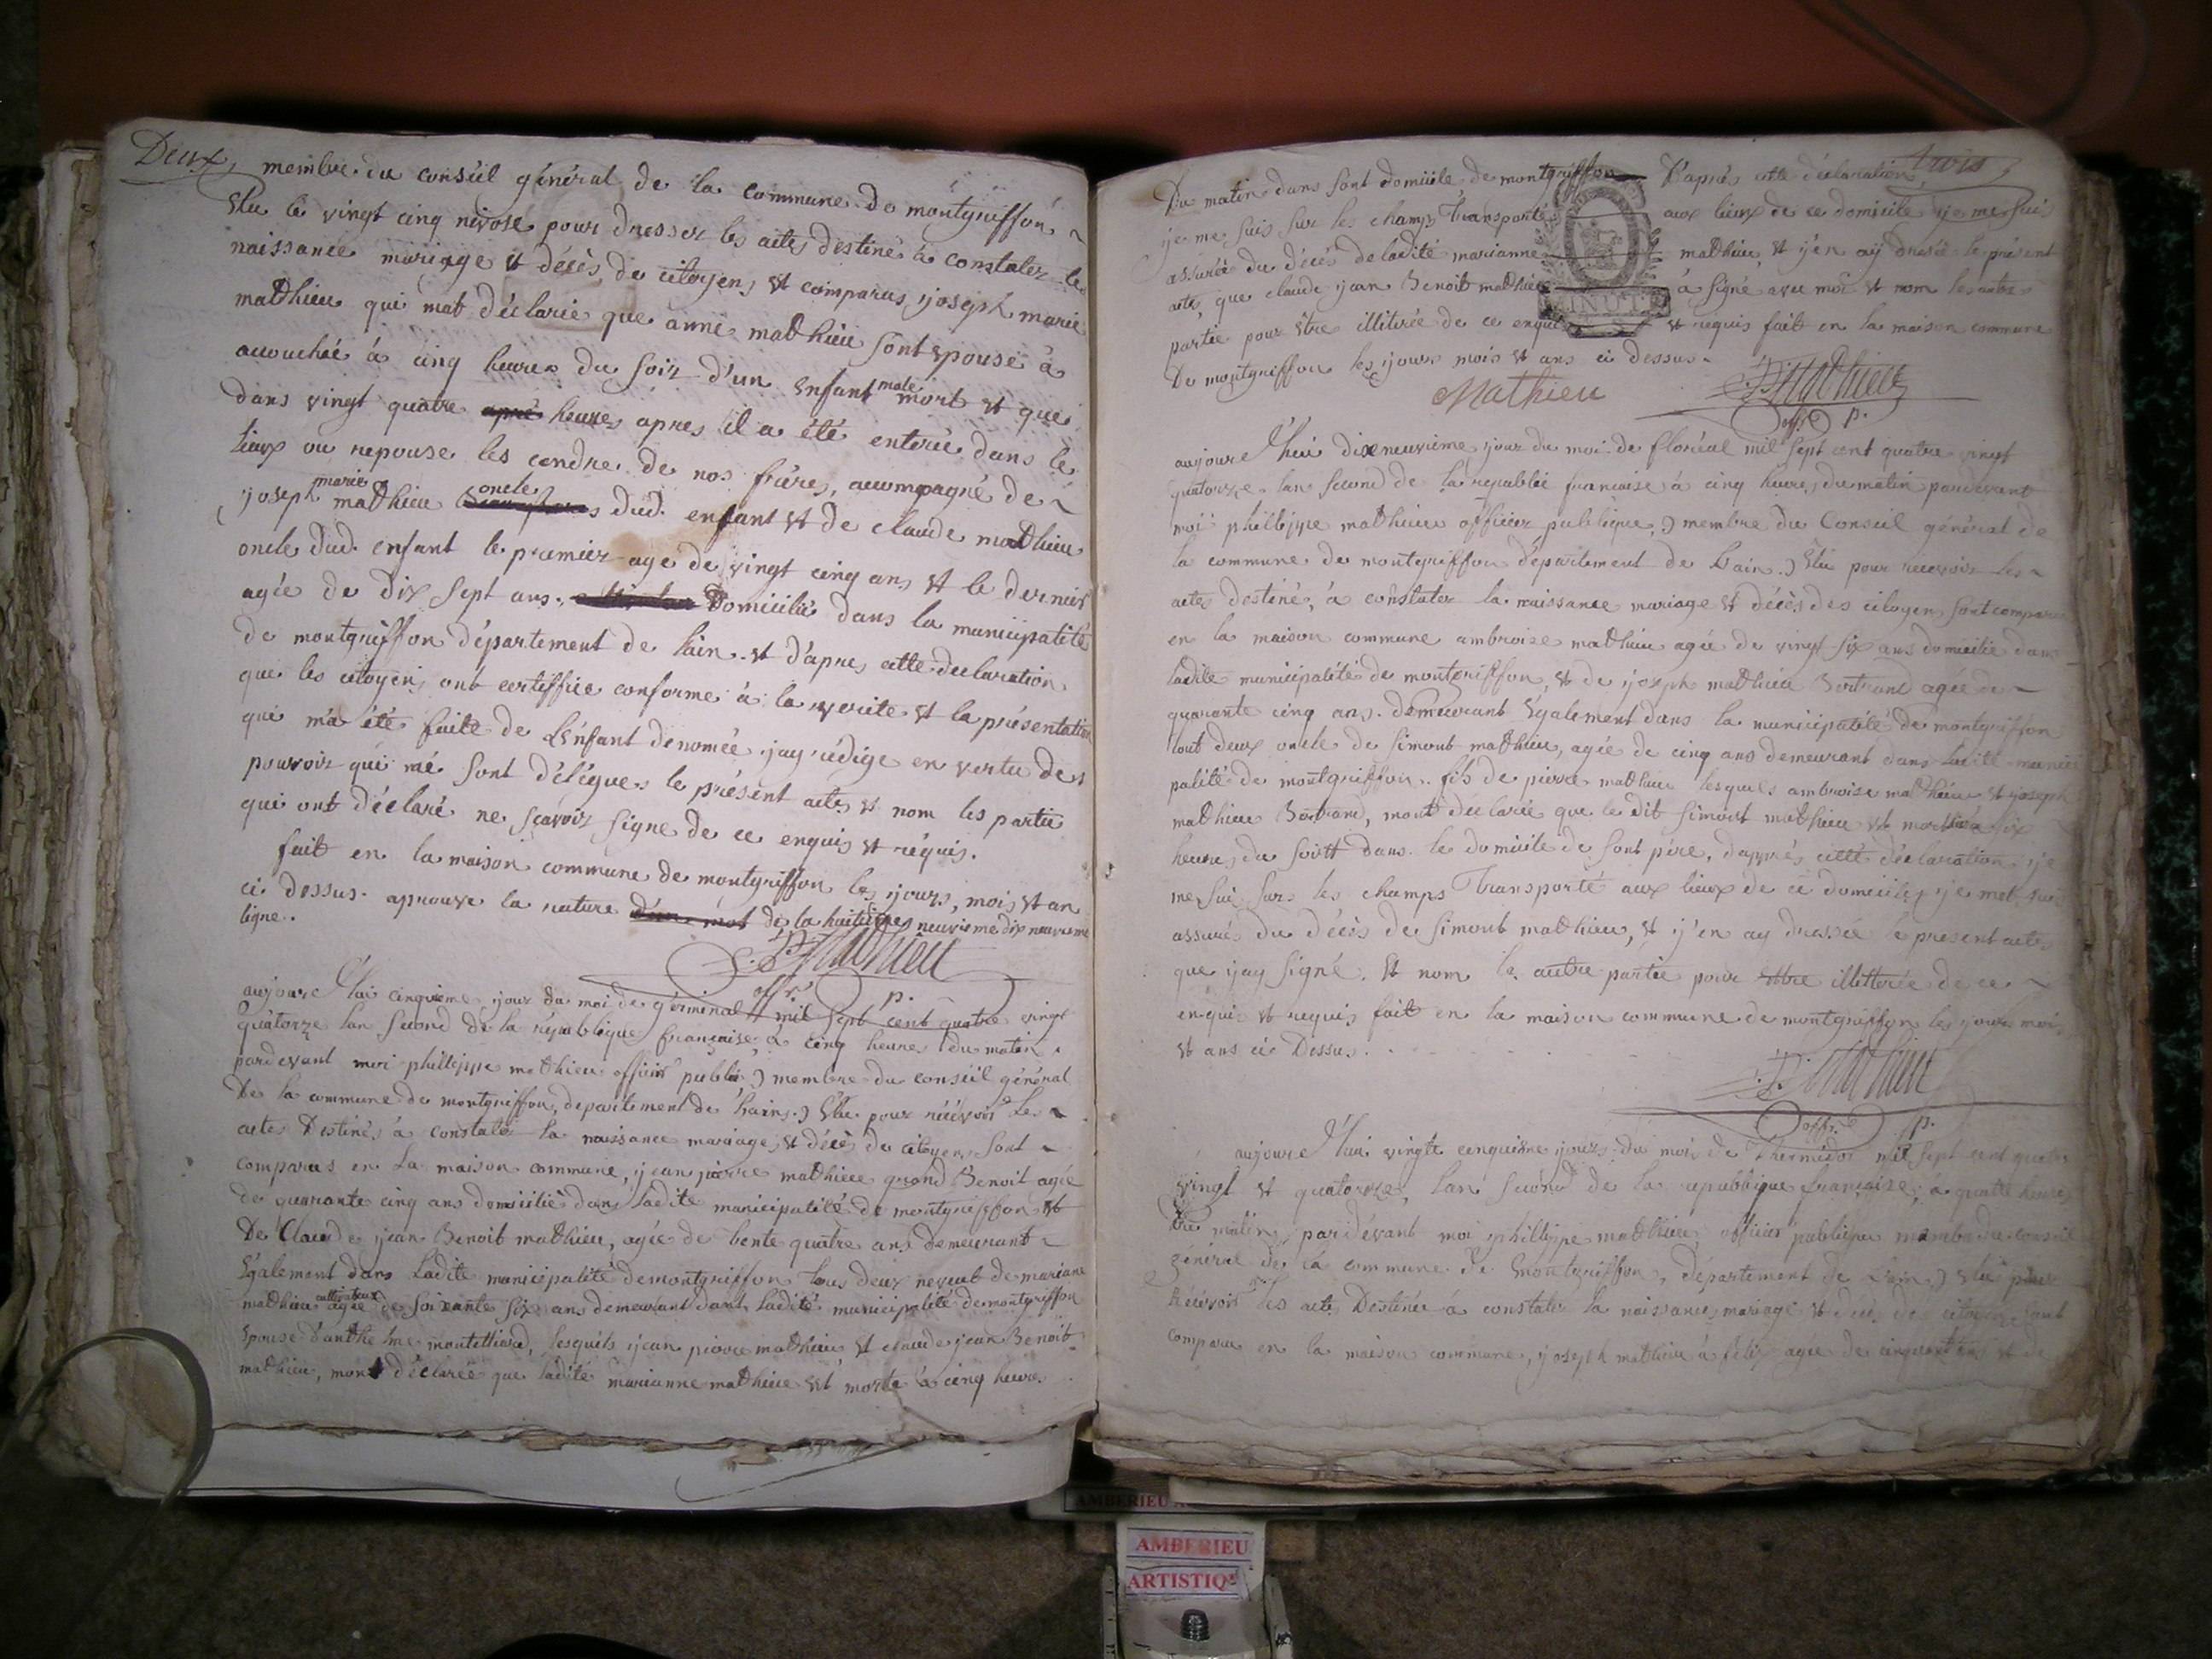 Deux
membre du conseil général de la commune de montgriffon
Elu le vingt cinq nivose pour dresser les actes destiné à constater le
naissance mariage et décès de citoyens et comparus joseph marie
mathieu qui mat déclarié que anne mathieu sont epouse à
accouchée à cinq heures du soir d'un enfant male mort et que
dans vingt quatre apré heures apres il a été enterée dans le
lieux ou repouse les cendre de nos frères, accompagné de
joseph marie mathieu oncle dud. enfant et de claude mathieu
oncle dud. enfant le premier age de vingt cinq ans et le dernier
agée de dix sept ans. Domicilié dans la municipalité
de montgriffon département de lain. et d'apres cette declaration
que les citoyens ont certiffiée conforme à la verite et la présentation
qui m'a été faite de L'enfant denomée jay rédige en vertu des
pouvoir qui mé sont délégues le présent acte et nom les partie
qui ont déclaré ne scavoir signe de ce enquis et réquis.
fait en la maison commune de montgriffon les jours, mois et an
ci dessus. aprouve la rature d'un mot de la huitième neuvieme dix neuvieme
ligne.
P. Mathieu
off. p.
aujourd'hui cinquieme jour du moi de germinal mil sept cent quatre vingt
quatorze lan second de la république française à cinq heures du matin
pardevant moi phillippe mathieu officier public, membre du conseil général
De la commune de montgriffon, departement de l'hain, Elu pour récévoir Les
actes Destinés à constaté la naissance mariage et décès de citoyens sont
comparus en La maison commune, jean pierre mathieu grand Benoit agée
de quarante cinq ans domicilié dans ladite municipalité de montgriffon et
De Claude jean Benoit mathieu, agée de trente quatre ans demeurant
également dans Ladite municipalité de montgriffon tous deux neveut de mariane
mathieu cultivateur agée de soixante six ans demeurant dans ladité municipalité de montgriffon
Epouse d'anthelme montettiard, lesquels jean pierre mathieu et claude jean Benoit
mathieu, mont déclarée que ladité marianne mathieu est morte à cinq heures
trois
Du matin dans sont domicile de montgriffon D'après cette déclaration
je me suis sur les champs Transporté aux lieux de ce domicile, je me suis
assurée du décés de ladité marianne mathieu, et j'en ay dressé le présent
acte, que claude jean Benoit mathieu à signé avec moi et nom les autres
partie pour être illiterée de ce enquis et réquis fait en la maison commune
De montgriffon les jours mois et ans ci dessus.
MINUTE
Mathieu P. Mathieu
off. p.
aujourd'hui dix neuvième jour du moi de floréal mil sept cent quatre vingt
quatorze lan second de la républic francaise à cinq heures du matin pardevant
moi phillippe mathieu officier publique, membre du Conseil général de
la commune de montgriffon département de Lain, Elu pour récevoir les
actes destiné, à constater la naissance mariage et décès des citoyens sont comparus
en la maison commune ambroise mathieu agée de vingt six ans domicilié dans
ladite municipalité de montgriffon, et de joseph mathieu Bertrand agée de
quarante cinq ans. demeurant également dans la municipalité de montgriffon
tout deux oncle de simont mathieu, agée de cinq ans demeurant dans ladité munici
palité de montgriffon. fils de pierre mathieu lesquels ambroise mathieu et joseph
mathieu Bertrand, mont déclarée que le dit simont mathieu est mort à six
heures du soir dans le domicile de sont pére, dapprés cette déclaration, je
me suis surs les champs Transporté aux lieux de ce domicile, je met suis
assurés du décès de simont mathieu, et j'en ay dressée le present acte
que jay signé. et nom le autre partie pour ettre illitterée de ce
enquis et requis fait en la maison commune de montgriffon les jours mois
et ans ci Dessus.
P. Mathieu
off. p.
aujourd'hui vingte cinquieme jours du mois de Thermidor mil sept cent quatre
vingt et quatorze, lan second de la republique française, à quatre heures
du matin, pardevant moi phillippe mathieu, officier publique membre du conseil
géneral de la commune de montgriffon, département de Lain, Elu pour
récévoir les acte Destinée à constaté la naissance, mariage et décès des citoyens sont
comparu en la maison commune, joseph mathieu à félix agée de cinquante ans et de
AMBERIEU
AMBERIEU
ARTISTIQ